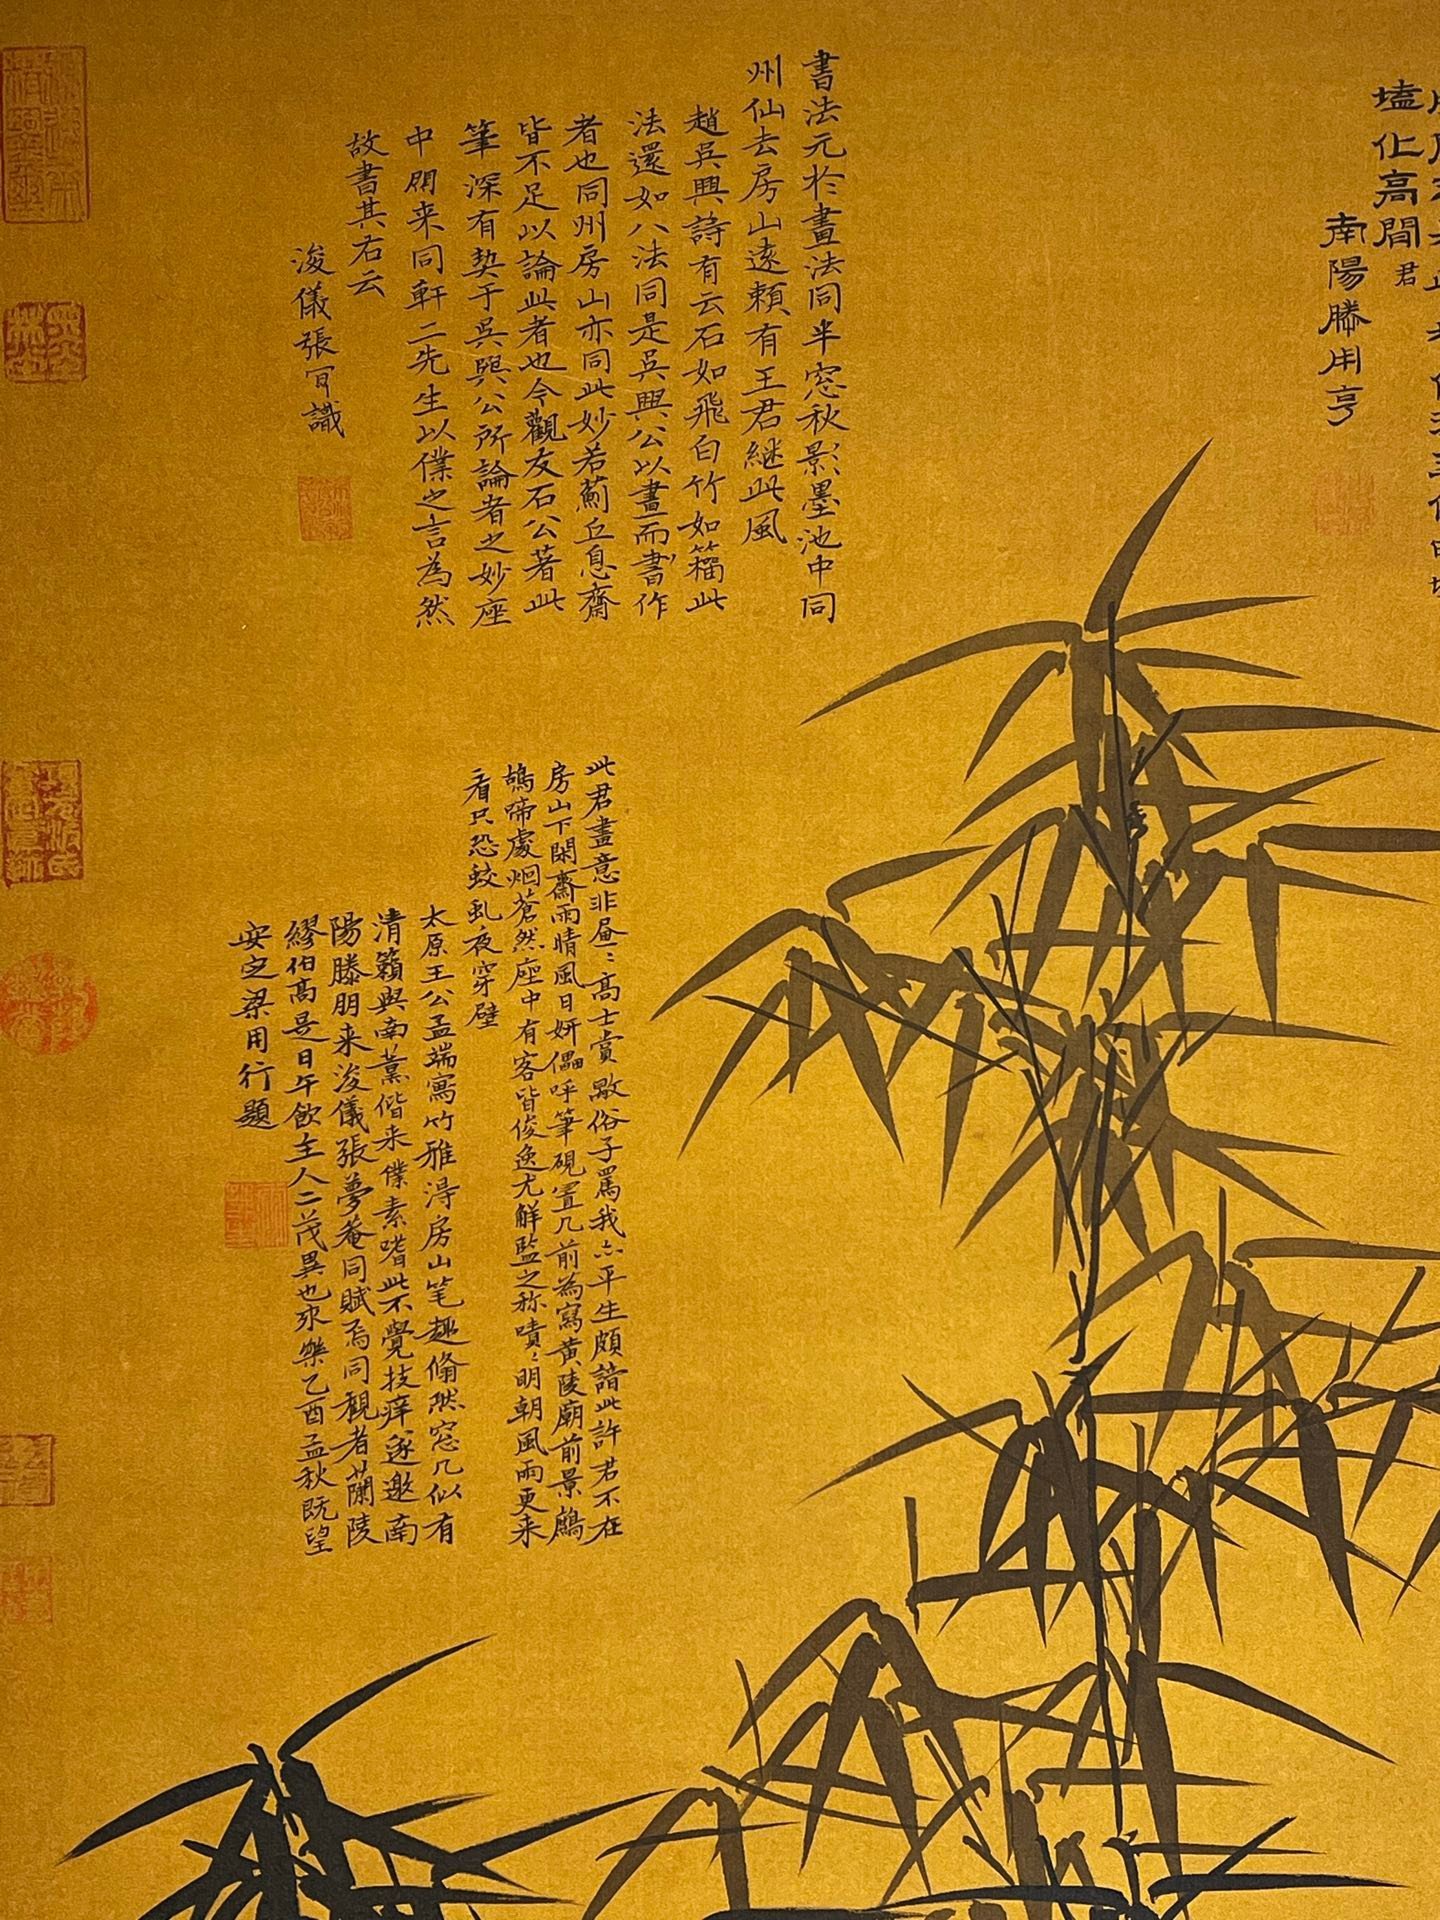 塩化高閒君
南陽滕用亨
書法元於畫法同半窓秋影墨池中同
州仙去房山遠頼有王君継此風
趙吳興詩有云石如飛白竹如籀此
法還如八法同是吳興公以畫而書作
者也同州房山亦同此妙若薊丘息齋
皆不足以論此者也今觀友石公著此
筆深有契于吳興公所論者之妙座
中朋来同軒二先生以僕之言為然
故書其右云
浚儀張肎識
此君畫意非昼〻高士賞歟俗子罵我亦平生頗諳此許君不在
房山下閑齋雨晴風日妍儡呼筆硯置几前為寫黄陵廟前景鷓
鴣啼處烟蒼然座中有客皆俊逸尤鮮監之称嘖〻明朝風雨更来
看只恐蛟虬夜穿壁
太原王公孟端寫竹雅淂房山笔趣翛然窓几似有
清籟與南薰偕来僕素嗜此不覺技痒遂邀南
陽滕朋来浚儀張夢菴同賦焉同観者蘭陵
繆伯高是日午飲主人二茂異也永樂乙酉孟秋既望
安定梁用行題